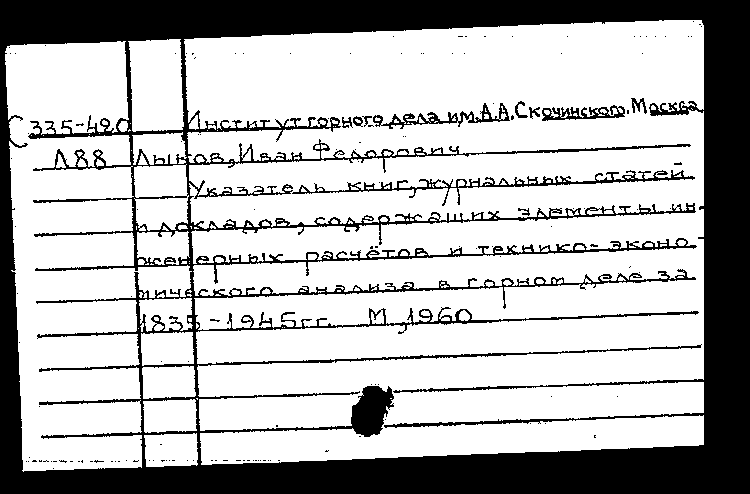 С 335-420 Институт горного дела им. А.А. Скочинского. Москва
Л88 Лыков, Иван Федорович.
Указатель книг, журнальных статей
и докладов, содержащих элементы ин-
женерных расчётов и технико-эконо-
мического анализа в горном деле за
1835-1945гг. М., 1960